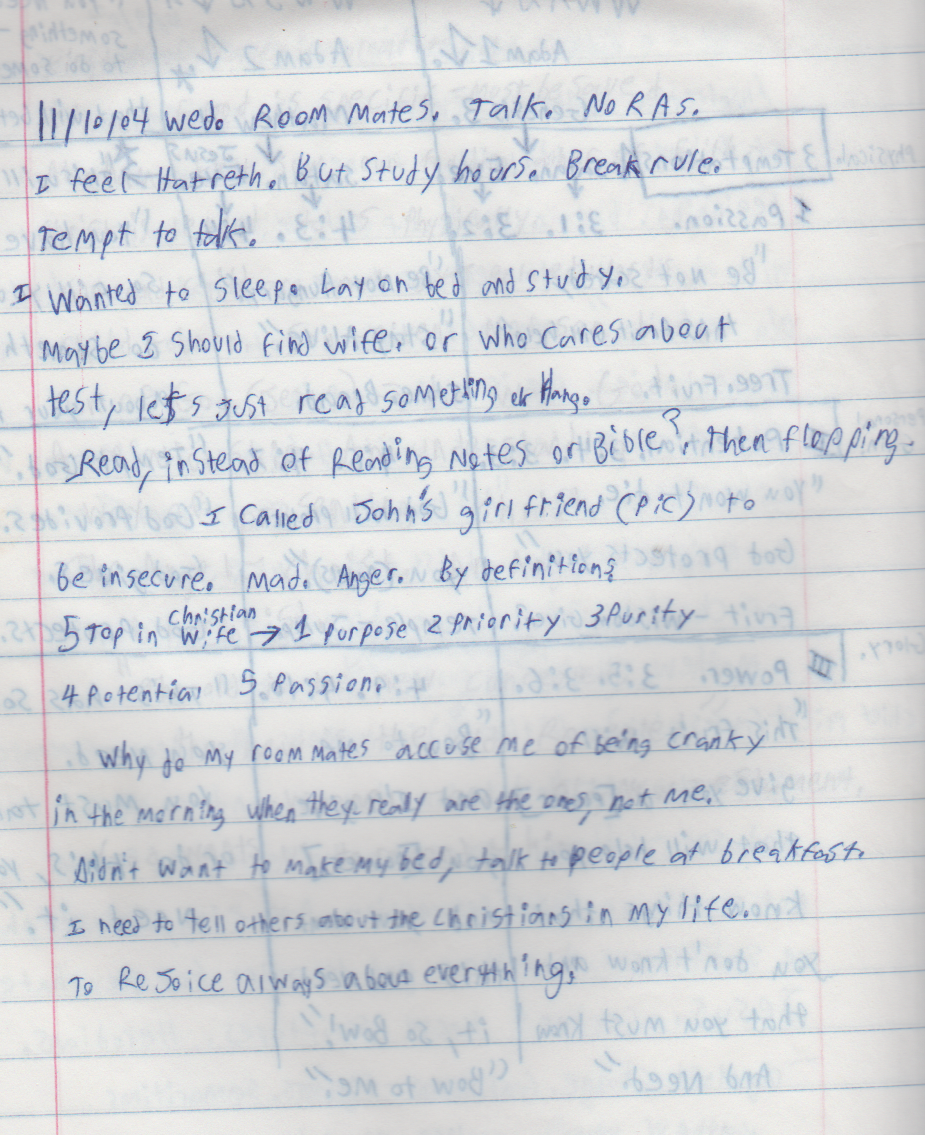 11/10/04 Wed. Room Mates. Talk. No RAs.
I feel Hatreth. But Study hours. Break rule.
Tempt to talk.
I Wanted to Sleep. Lay on bed and study.
Maybe I should find wife. or who cares about
test, let's Just read something or Hang.
Read, instead of Reading Notes or Bible? Then flopping.
I Called John's girlfriend (pic) to
be insecure. Mad. Anger. By definition;
5 Top in Christian Wife → 1 purpose 2 Priority 3 Purity
4 Potential 5 Passion.
Why do my roommates accuse me of being cranky
in the morning when they really are the ones, not me.
Didn't want to make my bed, talk to people at breakfast.
I need to tell others about the Christians in my life.
To Rejoice always about everything.